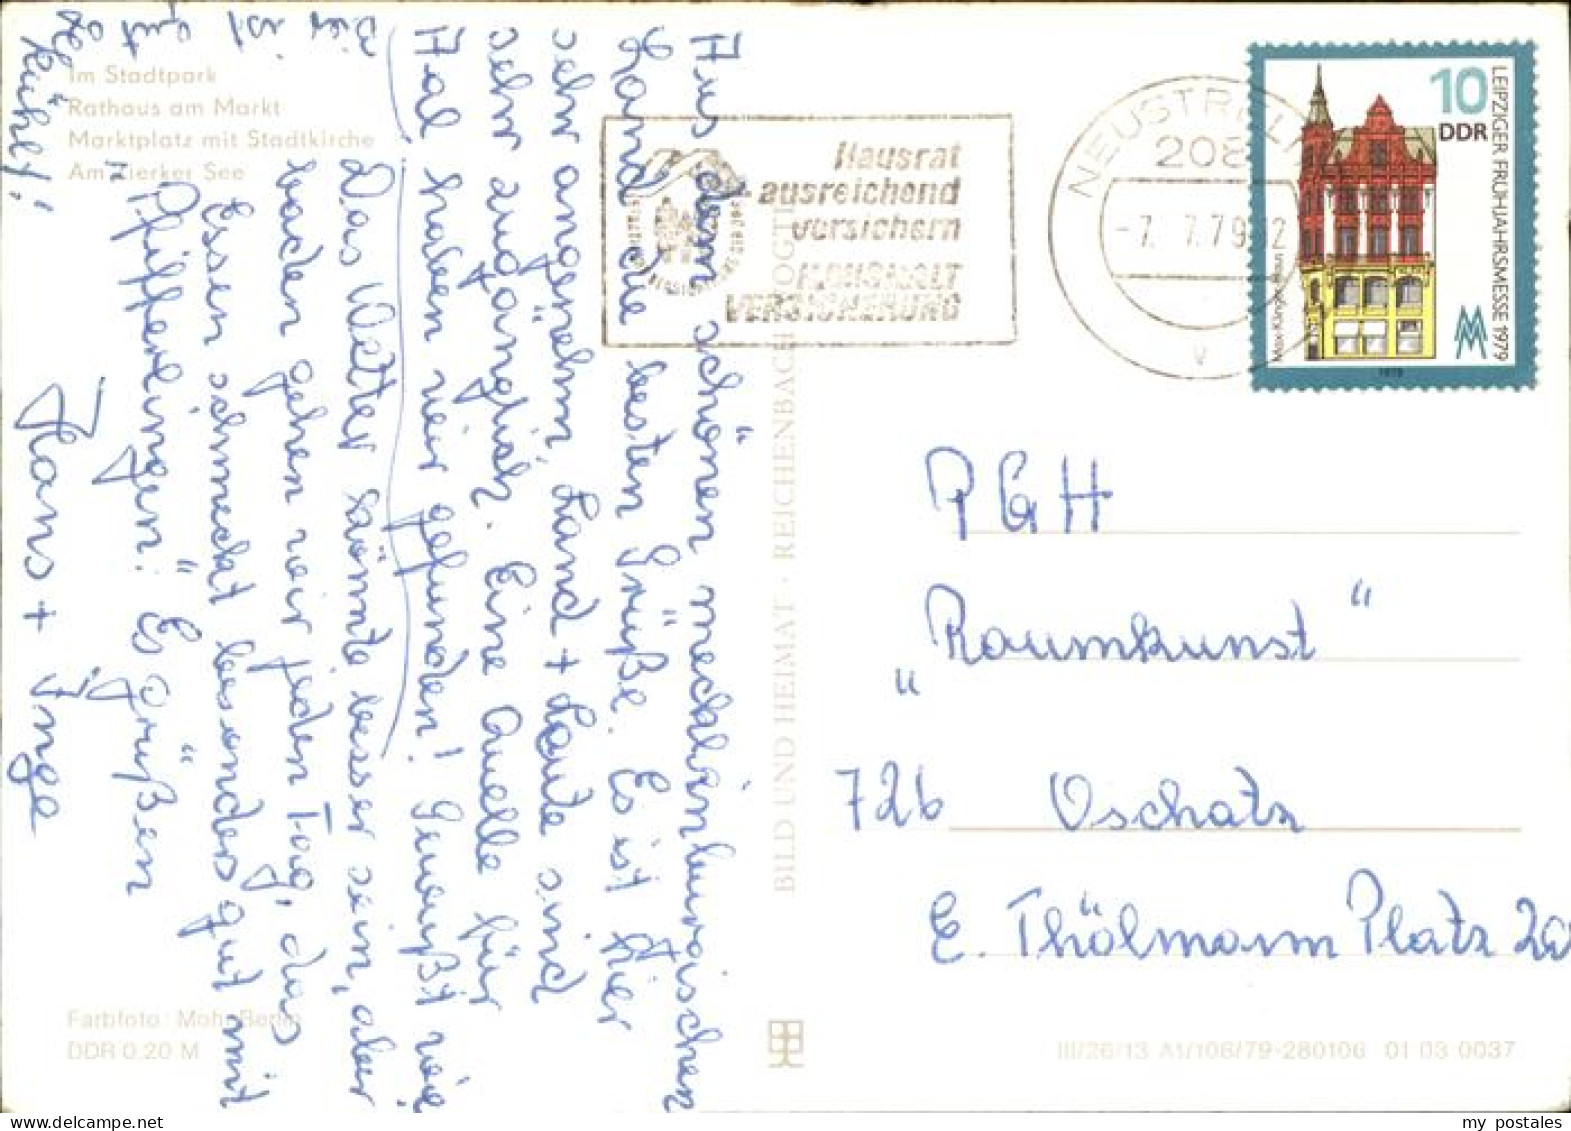 Im Stadtpark
Rathaus am Markt
Marktplatz mit Stadtkirche
Am Zierker See
Aus dem schönen mecklenburgischen
Land die besten Grüße. Es ist hier
sehr angenehm, Land + Leute sind
sehr zugänglich. Eine Quelle für
haben wir gefunden! Gewußt wie
Das Wetter könnte besser sein, aber
baden gehen wir jeden Tag, das
Essen schmeckt besonders gut mit
"Pfifferlingen". Es grüßen
Hans + Inge
Bier ist
gut
gekühlt!
BILD UND HEIMAT · REICHENBACH (VOGTL
Farbfoto: Moh, Berlin
DDR 0.20 M
Hausrat
ausreichend
versichern
HAUSHALT
VERSICHERUNG
NEUSTRELI
208
-7. 7.79-12
v
10
DDR
LEIPZIGER FRÜHJAHRSMESSE 1979
1979
PGH
„Raumkunst“
726 Oschatz
E. Thälmann Platz 2a
III/26/13 A1/106/79-280106 01 03 0037
my postales